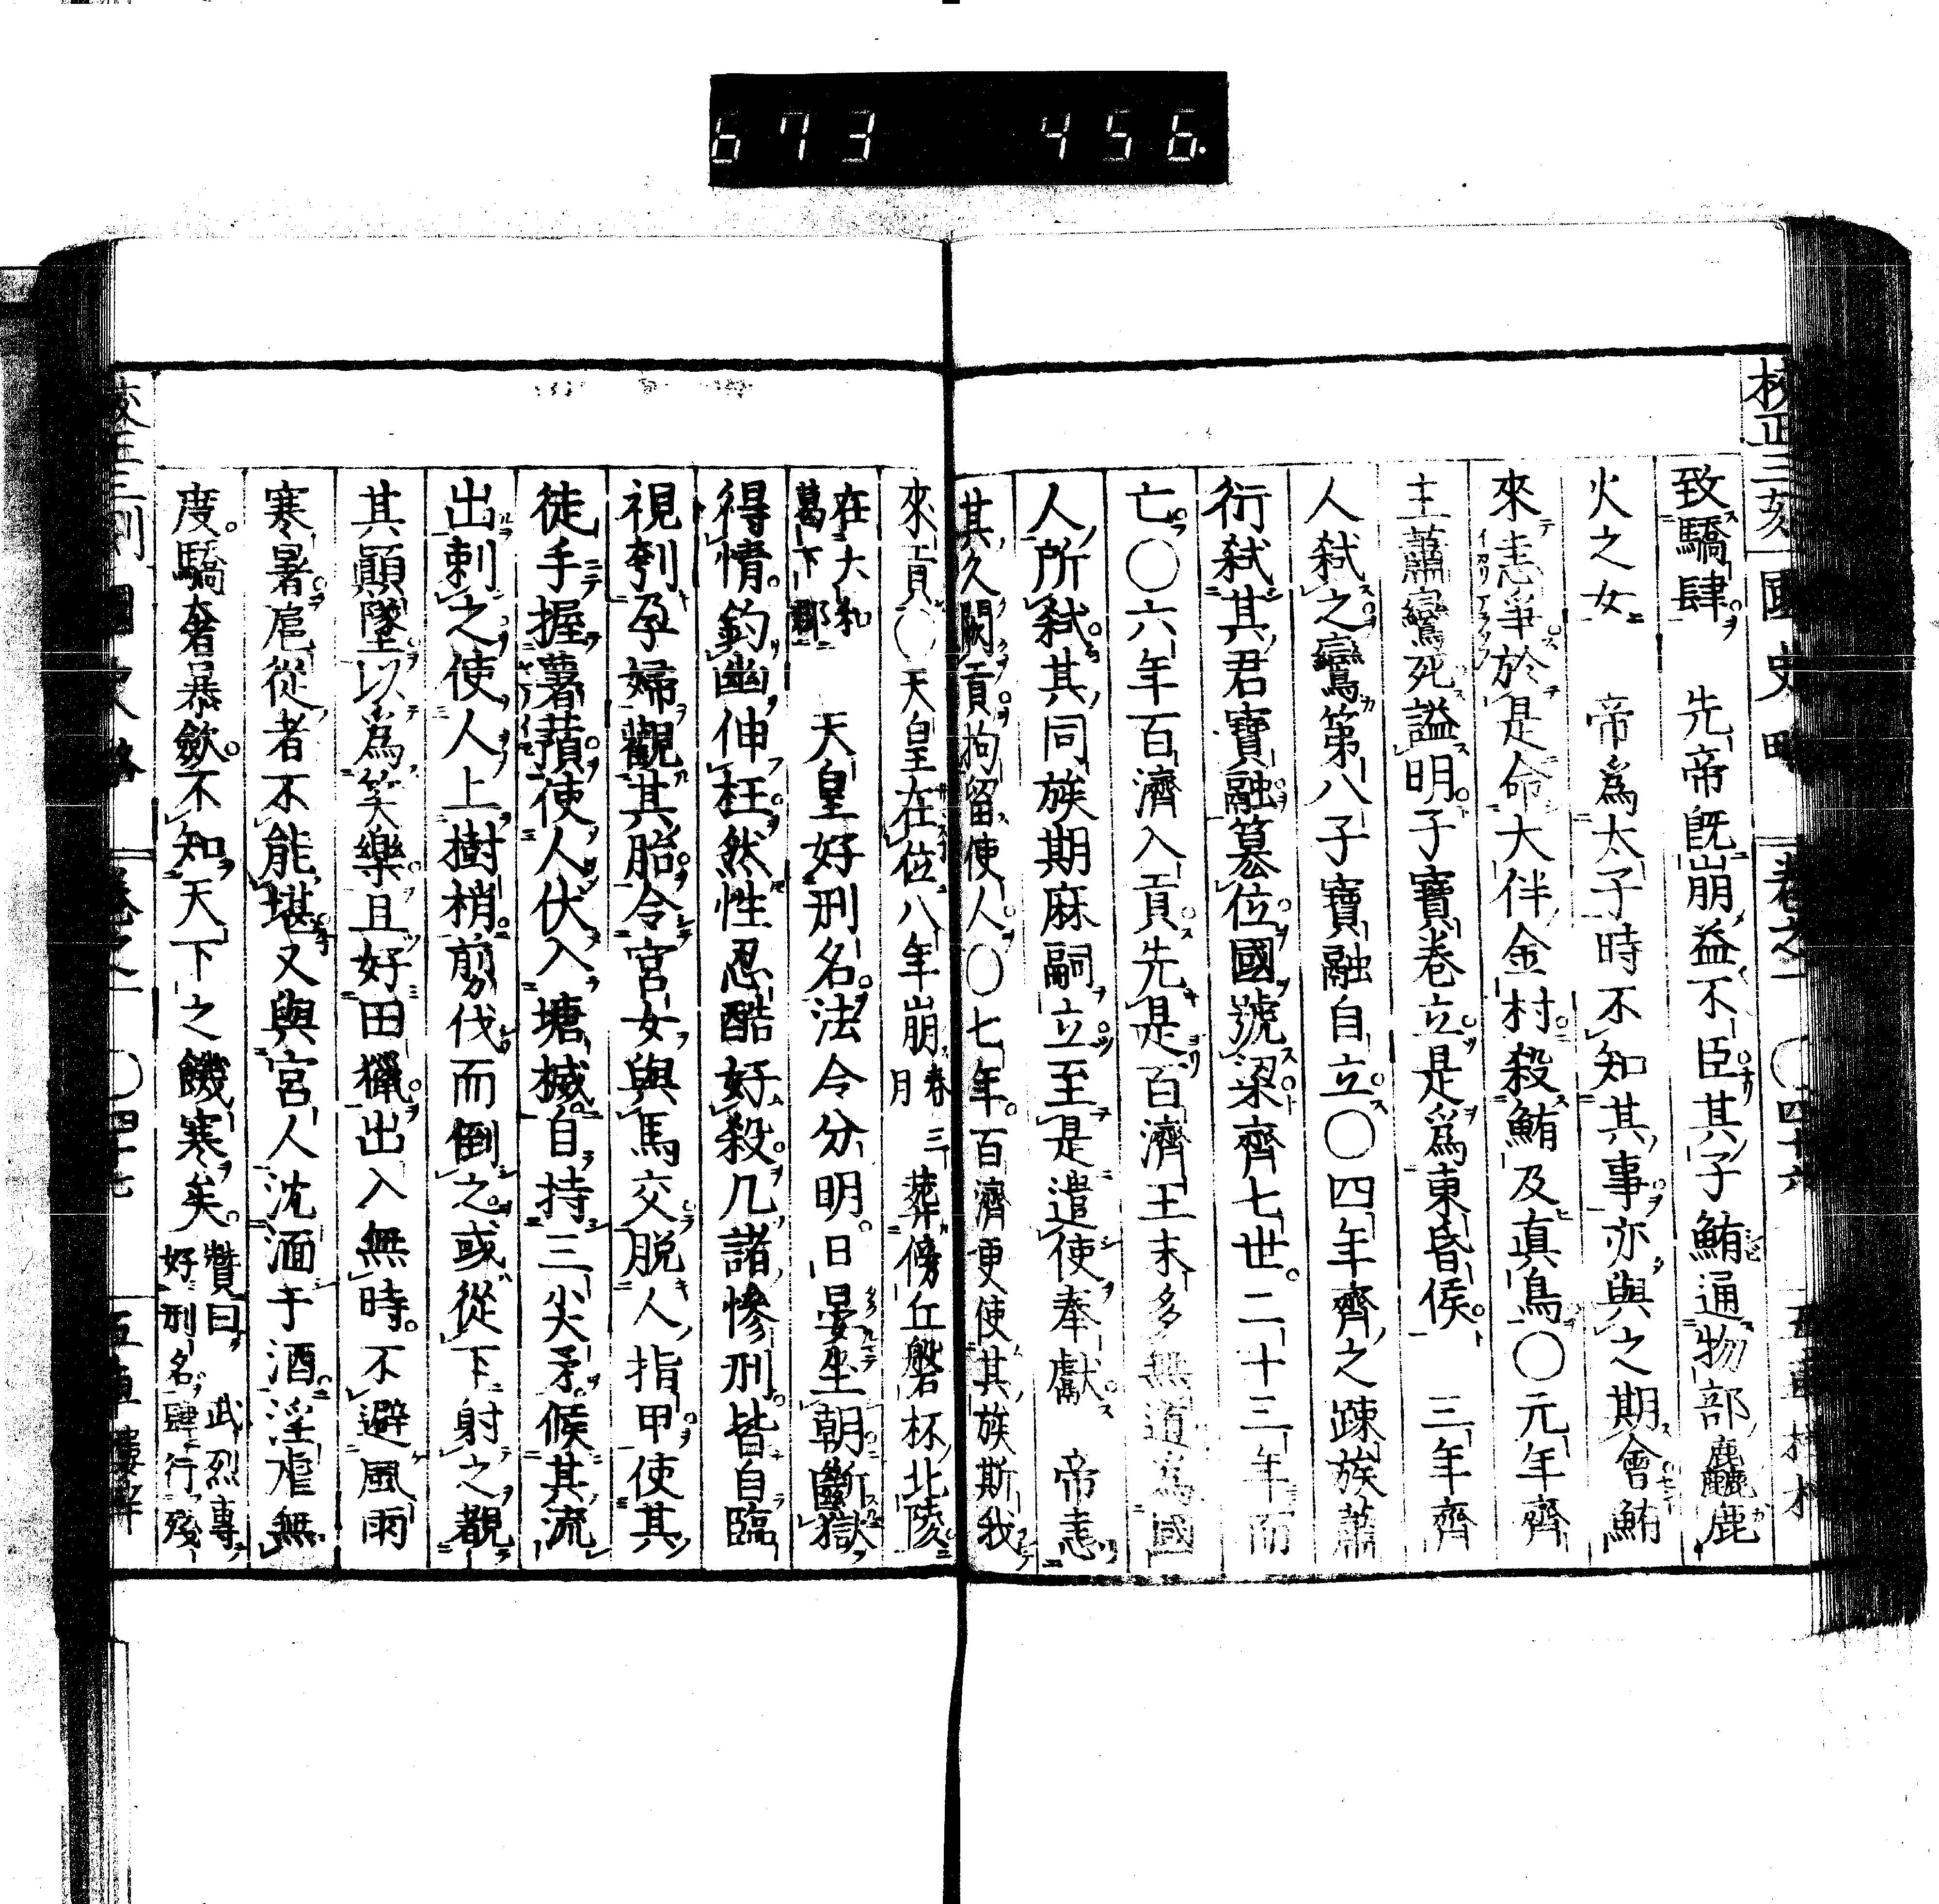 673 456.
校正三刻 國史略 卷之一 〇四十六
致驕肆。先帝既崩益不臣其子鮪通物部麤鹿
火之女 帝爲太子時不知其事亦與之期會鮪
來恚爭於是命大伴金村殺鮪及真鳥〇元年齊
主蕭鸞死謚明子寶卷立是爲東昏侯。三年齊
人弑之鸞第八子寶融自立〇四年齊之踈族蕭
衍弑其君寶融篡位國號梁齊七世。二十三年而
亡。〇六年百濟入貢先是百濟王末多無道爲國
人所弑其同族期麻嗣立至是遣使奉獻 帝恚
其久闕貢拘留使人〇七年。百濟更使其族斯我
來貢〇天皇在位八年崩春三月葬傍丘磐杯北陵
在大和葛下郡 天皇好刑名。法令分明。日晏坐朝斷獄
得情。鈎幽伸枉。然性忍酷好殺。凡諸慘刑。皆自臨
視刳孕婦觀其胎。令宮女與馬交脱人指甲使其
徒手握薯蕷。使人伏入塘槭自持三尖矛。候其流
出刺之使人上樹梢。剪伐而倒之。或從下射之觀
其顚墜以爲笑樂且好田獵。出入無時。不避風雨
寒暑。扈從者不能堪又與宮人沈湎于酒淫虐無
度。驕奢暴斂。不知天下之饑寒矣。贊曰 武烈專好刑名肆行殘
國史略 卷之一 〇四十七 五車樓梓